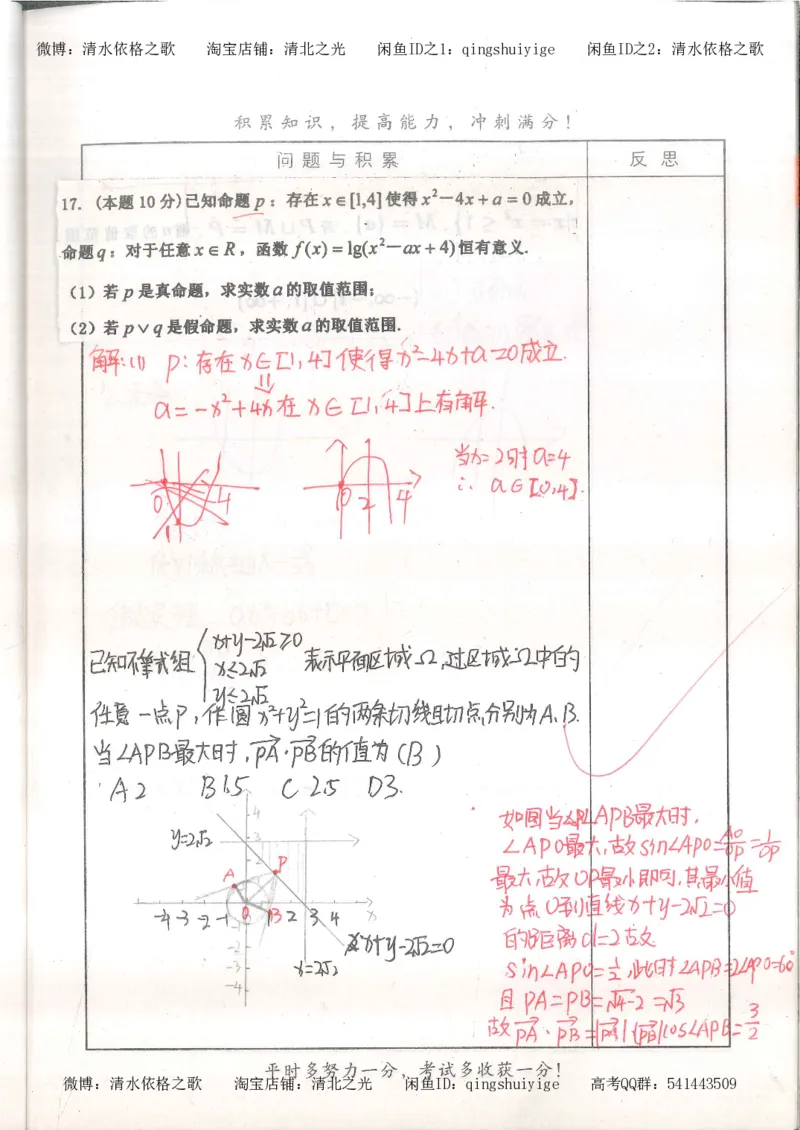 微博：清水依格之歌 淘宝店铺：清北之光 闲鱼ID之1：qingshuiyige 闲鱼ID之2：清水依格之歌
积累知识，提高能力，冲刺满分！
问题与积累 反思
17. (本题10分)已知命题p：存在x∈[1,4]使得x²－4x＋a＝0成立，
命题q：对于任意x∈R，函数f(x)＝lg(x²－ax＋4)恒有意义.
（1）若p是真命题，求实数a的取值范围；
（2）若p∨q是假命题，求实数a的取值范围.
解:(1) p:存在x∈[1,4]使得x²-4x+a=0成立.
⇓
a=-x²+4x在x∈[1,4]上有解.
当x=2时a=4
∴ a∈[0,4].
0 4
0 2 4
已知不等式组{x+y-2√2≥0
x≤2√2
y≤2√2
表示平面区域Ω,过区域Ω中的
任意一点P,作圆x²+y²=1的两条切线且切点分别为A、B.
当∠APB最大时,PA·PB的值为(B)
A 2 B 1.5 C 2.5 D 3.
4
y=2√2 3
2
A P
-4 -3 -2 -1 0 B 2 3 4 x
x+y-2√2=0
-2
-3 x=2√2
-4
如图当∠APB最大时,
∠APO最大,故sin∠APO=AO/OP=1/OP
最大,故OP最小即可,其最小值
为点O到直线x+y-2√2=0
的距离d=2故
sin∠APO=1/2,此时∠APB=2∠APO=60°
且PA=PB=√4-2=√3
故PA·PB=|PA||PB|cos∠APB=3/2
平时多努力一分，考试多收获一分！
微博：清水依格之歌 淘宝店铺：清北之光 闲鱼ID：qingshuiyige 高考QQ群：541443509